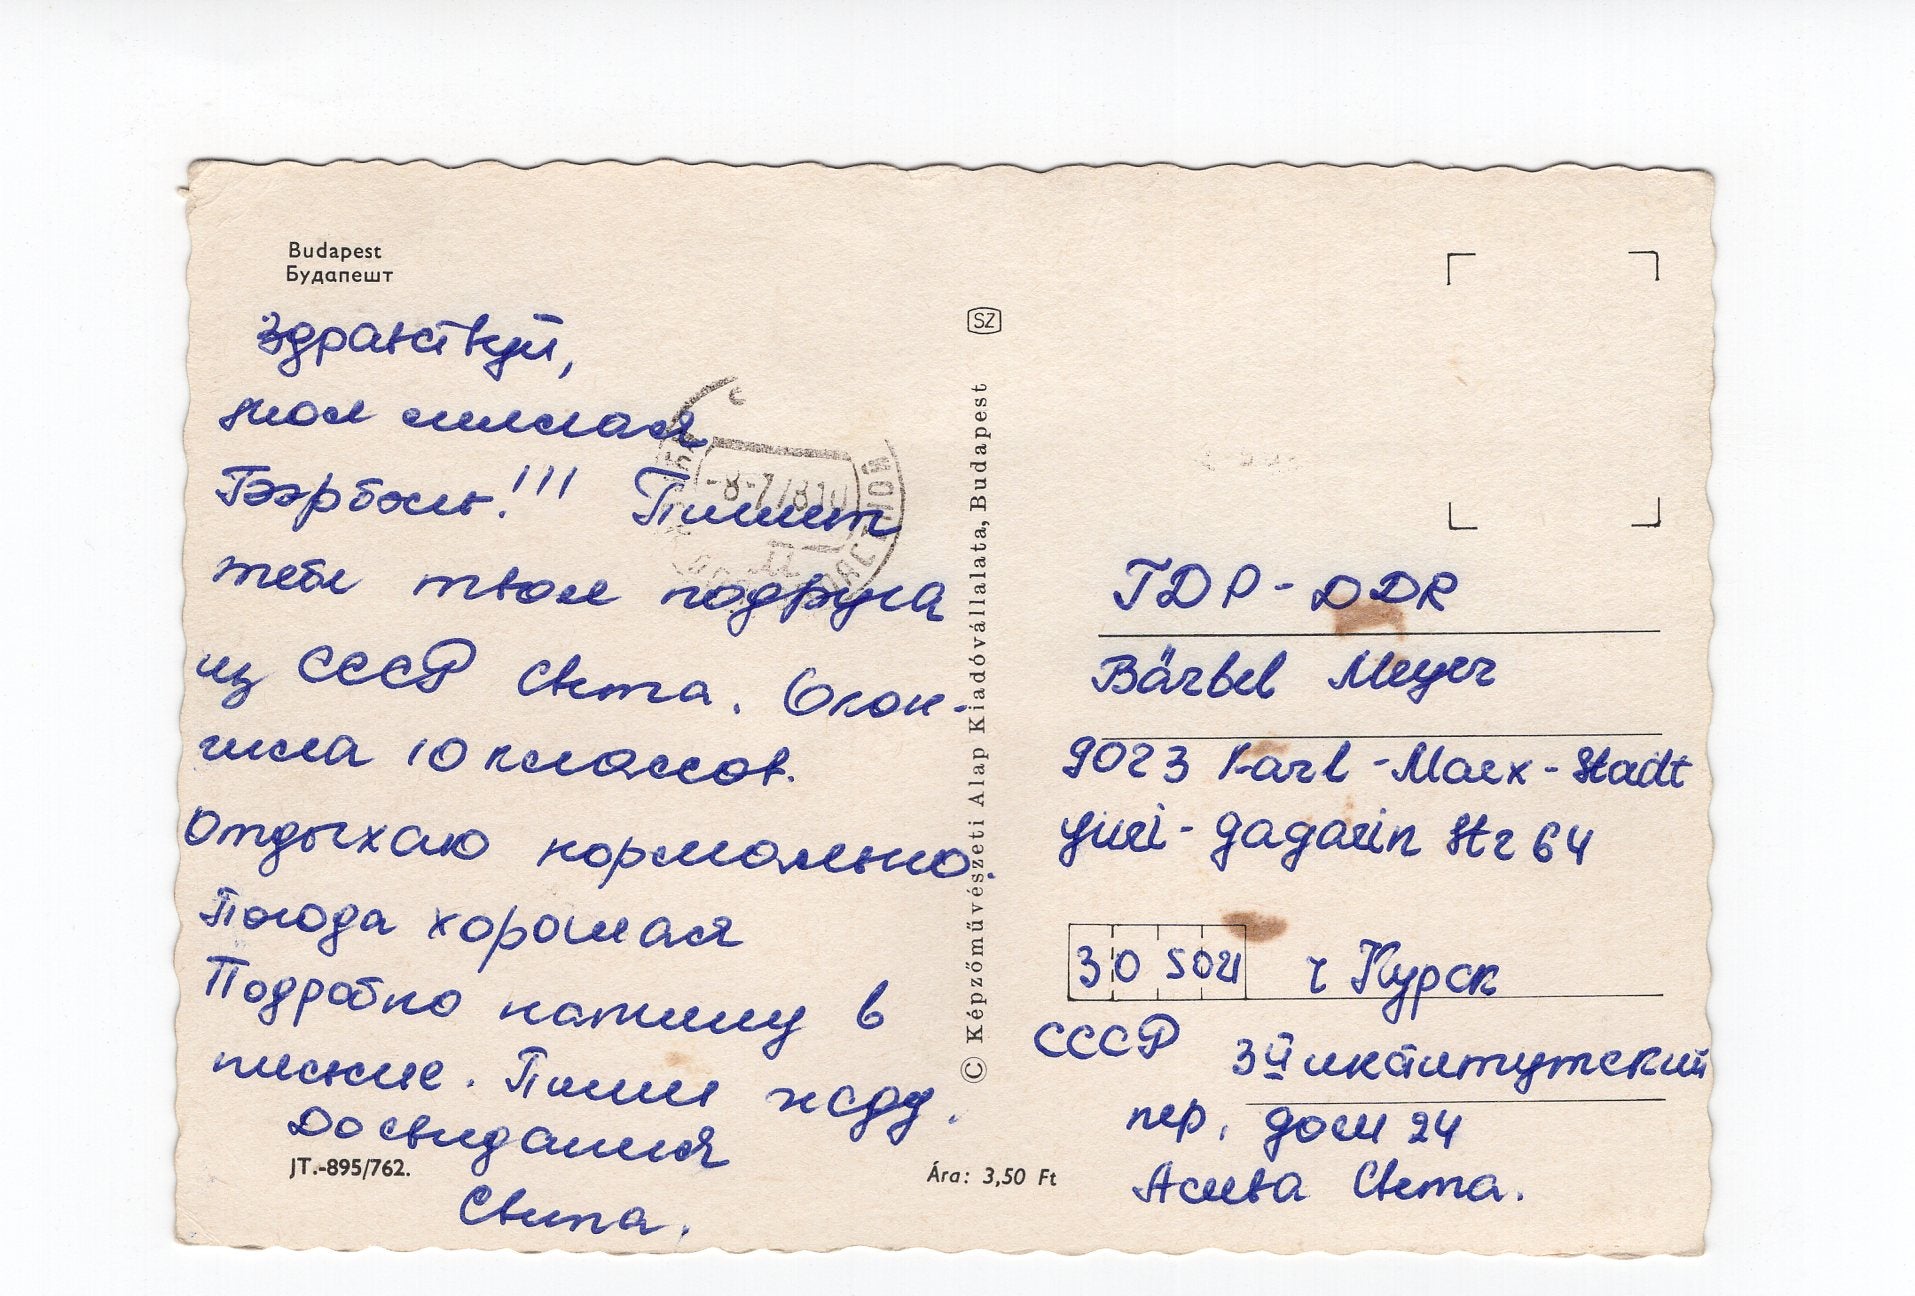 Budapest
Будапешт
Здравствуй,
моя милая
Бэрбэль!!! Пишет
тебе твоя подруга
из СССР Света. Окон-
чила 10 классов.
Отдыхаю нормально.
Погода хорошая
Подробно напишу в
письме. Пиши жду.
До свидания
Света.
JT.-895/762.
Ára: 3,50 Ft
SZ
© Képzőművészeti Alap Kiadóvállalata, Budapest
ГДР - DDR
Bärbel Meyer
9023 Karl-Marx-Stadt
Yuri-Gagarin Str 64
305021 г Курск
СССР 3й институтский
пер. дом 24
Света.